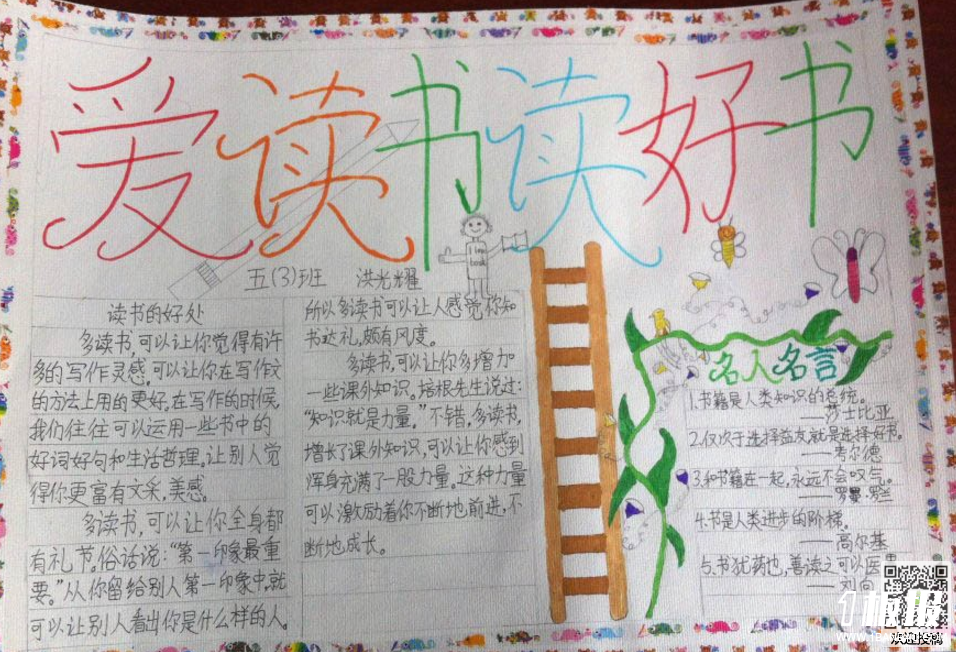 爱读书读好书
五(3)班 洪光耀
I love
book
读书的好处
多读书,可以让你觉得有许
多的写作灵感,可以让你在写作文
的方法上用的更好。在写作的时候,
我们往往可以运用一些书中的
好词好句和生活哲理。让别人觉
得你更富有文采,美感。
多读书,可以让你全身都
有礼节。俗话说:“第一印象最重
要。”从你留给别人第一印象中,就
可以让别人看出你是什么样的人。
所以多读书可以让人感觉你知
书达礼,颇有风度。
多读书,可以让你多增加
一些课外知识。培根先生说过:
“知识就是力量。”不错,多读书,
增长了课外知识,可以让你感到
浑身充满了一股力量。这种力量
可以激励着你不断地前进,不
断地成长。
名人名言
1.书籍是人类知识的总统。
——莎士比亚
2.仅次于选择益友,就是选择好书。
——考尔德
3.和书籍在一起,永远不会叹气。
——罗曼·罗兰
4.书是人类进步的阶梯。
——高尔基
5.书犹药也,善读之可以医
——刘向